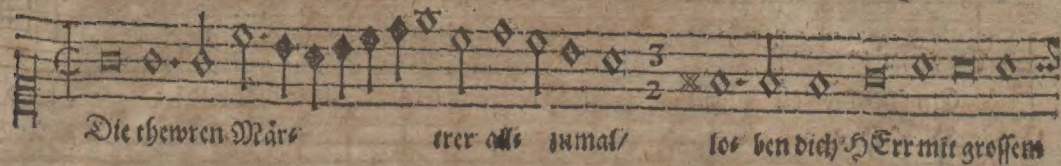 3
2
Die thewren Mär⸗ trer all⸗ zumal/ lo⸗ ben dich HErr mit grossem